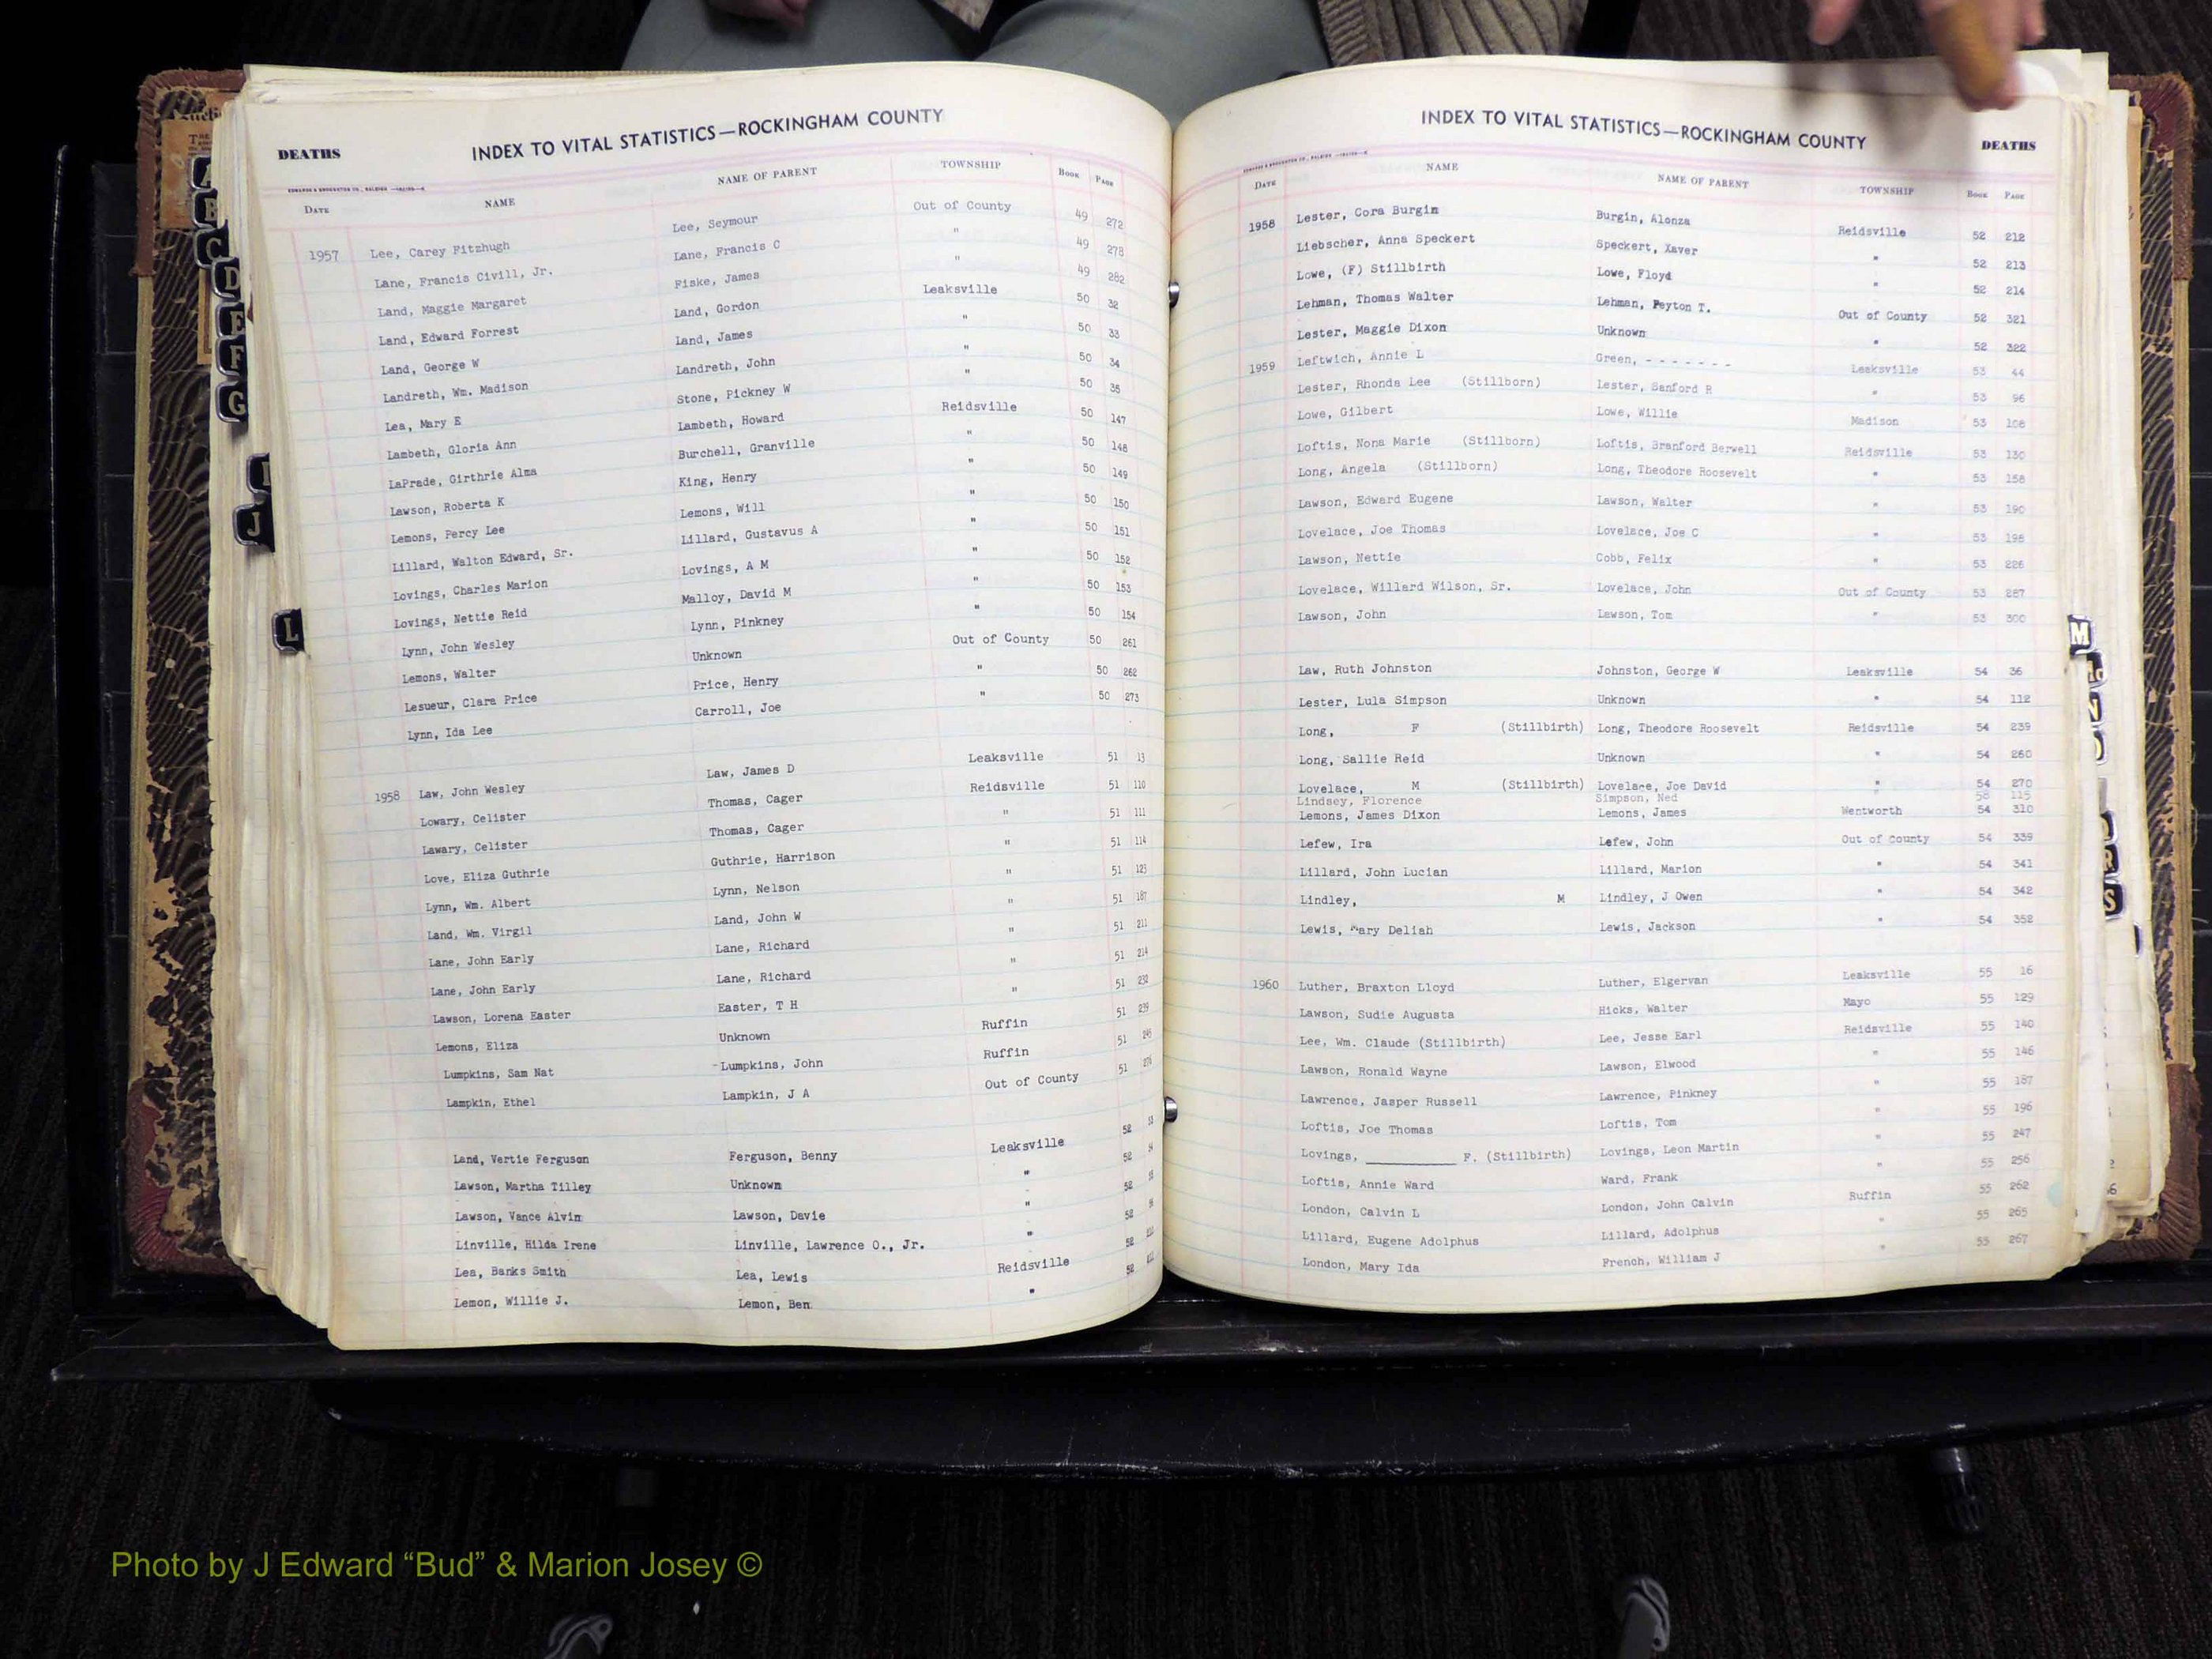 INDEX TO VITAL STATISTICS—ROCKINGHAM COUNTY
DEATHS
EDWARDS & BROUGHTON CO., RALEIGH
DATE NAME NAME OF PARENT TOWNSHIP BOOK PAGE
1957 Lee, Carey Fitzhugh Lee, Seymour Out of County 49 272
Lane, Francis Civill, Jr. Lane, Francis C " 49 278
Land, Maggie Margaret Fiske, James " 49 282
Land, Edward Forrest Land, Gordon Leaksville 50 32
Land, George W Land, James " 50 33
Landreth, Wm. Madison Landreth, John " 50 34
Lea, Mary E Stone, Pickney W " 50 35
Lambeth, Gloria Ann Lambeth, Howard Reidsville 50 147
LaPrade, Girthrie Alma Burchell, Granville " 50 148
Lawson, Roberta K King, Henry " 50 149
Lemons, Percy Lee Lemons, Will " 50 150
Lillard, Walton Edward, Sr. Lillard, Gustavus A " 50 151
Lovings, Charles Marion Lovings, A M " 50 152
Lovings, Nettie Reid Malloy, David M " 50 153
Lynn, John Wesley Lynn, Pinkney " 50 154
Lemons, Walter Unknown Out of County 50 261
Lesueur, Clara Price Price, Henry " 50 262
Lynn, Ida Lee Carroll, Joe " 50 273
1958 Law, John Wesley Law, James D Leaksville 51 13
Lowary, Celister Thomas, Cager Reidsville 51 110
Lawary, Celister Thomas, Cager " 51 111
Love, Eliza Guthrie Guthrie, Harrison " 51 114
Lynn, Wm. Albert Lynn, Nelson " 51 123
Land, Wm. Virgil Land, John W " 51 187
Lane, John Early Lane, Richard " 51 211
Lane, John Early Lane, Richard " 51 214
Lawson, Lorena Easter Easter, T H " 51 232
Lemons, Eliza Unknown Ruffin 51 239
Lumpkins, Sam Nat Lumpkins, John Ruffin 51 245
Lampkin, Ethel Lampkin, J A Out of County 51
Land, Vertie Ferguson Ferguson, Benny Leaksville 52
Lawson, Martha Tilley Unknown " 52
Lawson, Vance Alvin Lawson, Davie " 52
Linville, Hilda Irene Linville, Lawrence O., Jr. " 52
Lea, Banks Smith Lea, Lewis Reidsville 52
Lemon, Willie J. Lemon, Ben " 52
INDEX TO VITAL STATISTICS—ROCKINGHAM COUNTY
DEATHS
EDWARDS & BROUGHTON CO., RALEIGH
DATE NAME NAME OF PARENT TOWNSHIP BOOK PAGE
1958 Lester, Cora Burgin Burgin, Alonza Reidsville 52 212
Liebscher, Anna Speckert Speckert, Xaver " 52 213
Lowe, (F) Stillbirth Lowe, Floyd " 52 214
Lehman, Thomas Walter Lehman, Peyton T. Out of County 52 321
Lester, Maggie Dixon Unknown " 52 322
1959 Leftwich, Annie L Green, - - - - - - - Leaksville 53 44
Lester, Rhonda Lee (Stillborn) Lester, Sanford R " 53 96
Lowe, Gilbert Lowe, Willie Madison 53 108
Loftis, Nona Marie (Stillborn) Loftis, Branford Berwell Reidsville 53 130
Long, Angela (Stillborn) Long, Theodore Roosevelt " 53 158
Lawson, Edward Eugene Lawson, Walter " 53 190
Lovelace, Joe Thomas Lovelace, Joe C " 53 198
Lawson, Nettie Cobb, Felix " 53 226
Lovelace, Willard Wilson, Sr. Lovelace, John Out of County 53 287
Lawson, John Lawson, Tom " 53 300
Law, Ruth Johnston Johnston, George W Leaksville 54 36
Lester, Lula Simpson Unknown " 54 112
Long, F (Stillbirth) Long, Theodore Roosevelt Reidsville 54 239
Long, Sallie Reid Unknown " 54 260
Lovelace, M (Stillbirth) Lovelace, Joe David " 54 270
Lindsey, Florence Simpson, Ned " 58 115
Lemons, James Dixon Lemons, James Wentworth 54 310
Lefew, Ira Lefew, John Out of County 54 339
Lillard, John Lucian Lillard, Marion " 54 341
Lindley, M Lindley, J Owen " 54 342
Lewis, Mary Deliah Lewis, Jackson " 54 352
1960 Luther, Braxton Lloyd Luther, Elgervan Leaksville 55 16
Lawson, Sudie Augusta Hicks, Walter Mayo 55 129
Lee, Wm. Claude (Stillbirth) Lee, Jesse Earl Reidsville 55 140
Lawson, Ronald Wayne Lawson, Elwood " 55 146
Lawrence, Jasper Russell Lawrence, Pinkney " 55 187
Loftis, Joe Thomas Loftis, Tom " 55 196
Lovings, __________ F. (Stillbirth) Lovings, Leon Martin " 55 247
Loftis, Annie Ward Ward, Frank " 55 256
London, Calvin L London, John Calvin Ruffin 55 262
Lillard, Eugene Adolphus Lillard, Adolphus " 55 265
London, Mary Ida French, William J " 55 267
A
B
C
D
E
F
G
I
J
L
M
N
R
S
Photo by J Edward “Bud” & Marion Josey ©